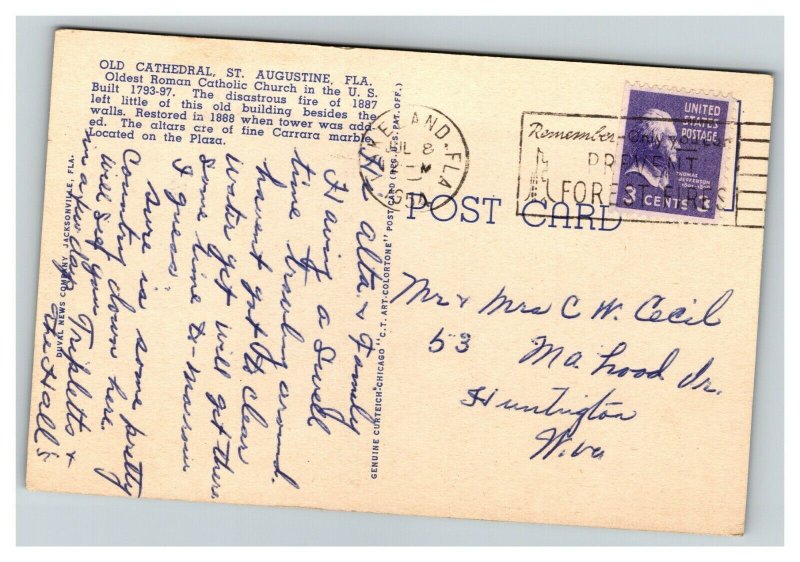 OLD CATHEDRAL, ST. AUGUSTINE, FLA.
Oldest Roman Catholic Church in the U. S.
Built 1793-97. The disastrous fire of 1887
left little of this old building besides the
walls. Restored in 1888 when tower was add-
ed. The altars are of fine Carrara marble.
Located on the Plaza.
DUVAL NEWS COMPANY, JACKSONVILLE, FLA.
Hd alta & Family
Having a Swell
time traveling around.
havent got to clear
water yet will get there
some time to-morrow
I guess.
sure is some pretty
Country down here.
will see you Tripletts &
in a few days
The Hall's
GENUINE CURTEICH-CHICAGO "C.T. ART-COLORTONE" POST CARD (REG. U. S. PAT. OFF.)
LAND, FLA
JUL 8
Remember-Only you can
PREVENT
FOREST FIRES
UNITED
STATES
POSTAGE
THOMAS
JEFFERSON
3 CENTS 3
POST CARD
Mr & Mrs C W. Cecil
53 Mahood Dr.
Huntington
W.va